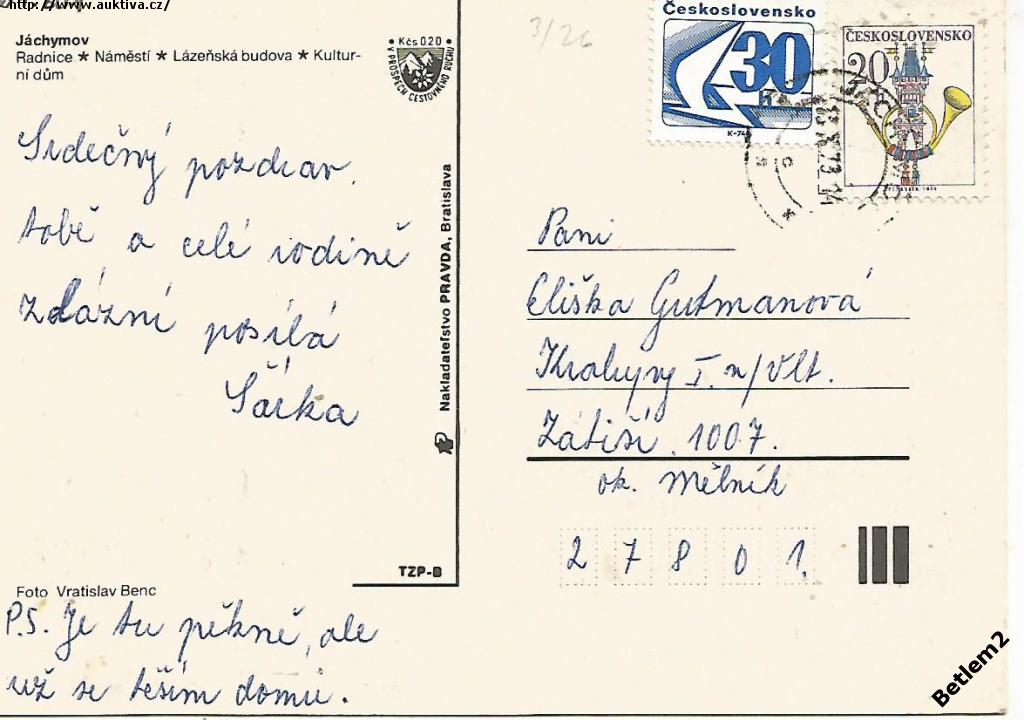 http://www.auktiva.cz/
Jáchymov
Radnice ★ Náměstí ★ Lázeňská budova ★ Kultur-
ní dům
• Kčs 0.20 •
V PROSPĚCH CESTOVNÉHO RUCHU
3/26
Československo
30
H
K-74
ČESKOSLOVENSKO
20
Srdečný pozdrav
tobě a celé rodině
z lázní posílá
Šárka
Nakladateľstvo PRAVDA, Bratislava
TZP-B
Foto Vratislav Benc
P.S. Je tu pěkně, ale
už se těším domů.
Paní
Eliška Gutmanová
Kralupy I. n/Vlt.
Zátiší 1007.
ok. Mělník
2 7 8 0 1.
Betlem2